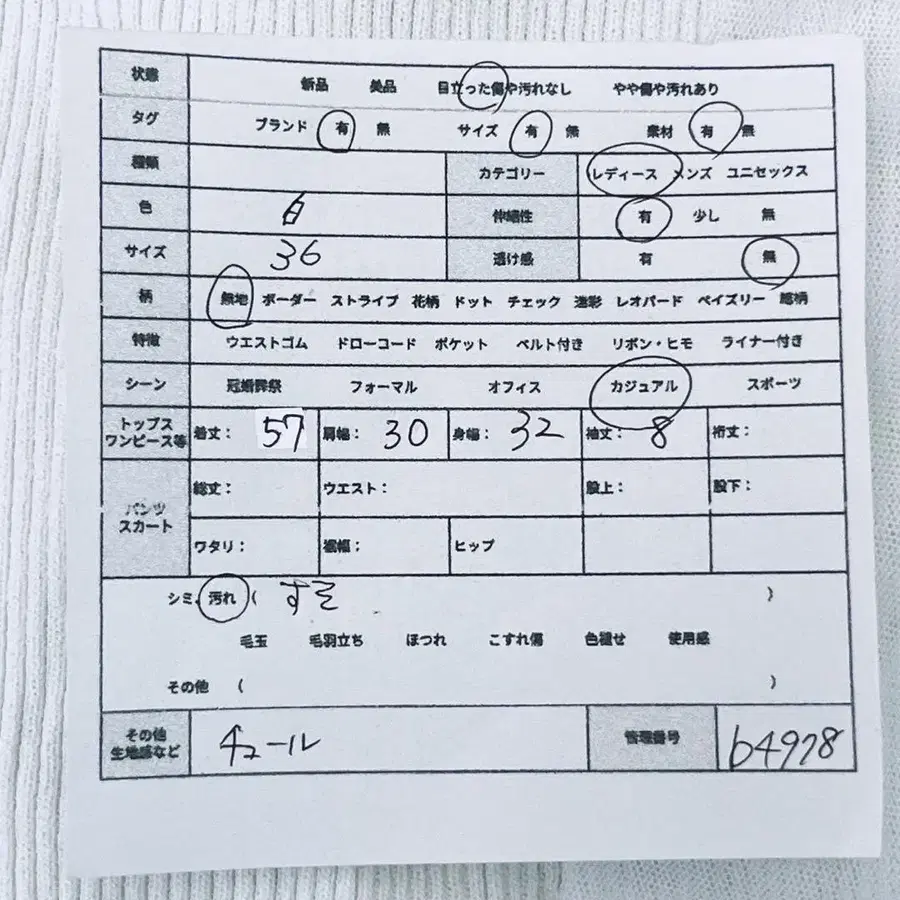 状態 新品 美品 目立った傷や汚れなし やや傷や汚れあり
タグ ブランド 有 無 サイズ 有 無 素材 有 無
種類 カテゴリー レディース メンズ ユニセックス
色 白 伸縮性 有 少し 無
サイズ 36 透け感 有 無
柄 無地 ボーダー ストライプ 花柄 ドット チェック 迷彩 レオパード ペイズリー 総柄
特徴 ウエストゴム ドローコード ポケット ベルト付き リボン・ヒモ ライナー付き
シーン 冠婚葬祭 フォーマル オフィス カジュアル スポーツ
トップス
ワンピース等 着丈: 57 肩幅: 30 身幅: 32 袖丈: 8 裄丈:
パンツ
スカート 総丈: ウエスト: 股上: 股下:
ワタリ: 裾幅: ヒップ
シミ、汚れ ( すそ )
毛玉 毛羽立ち ほつれ こすれ傷 色褪せ 使用感
その他 ( )
その他
生地感など チュール 管理番号 b4978